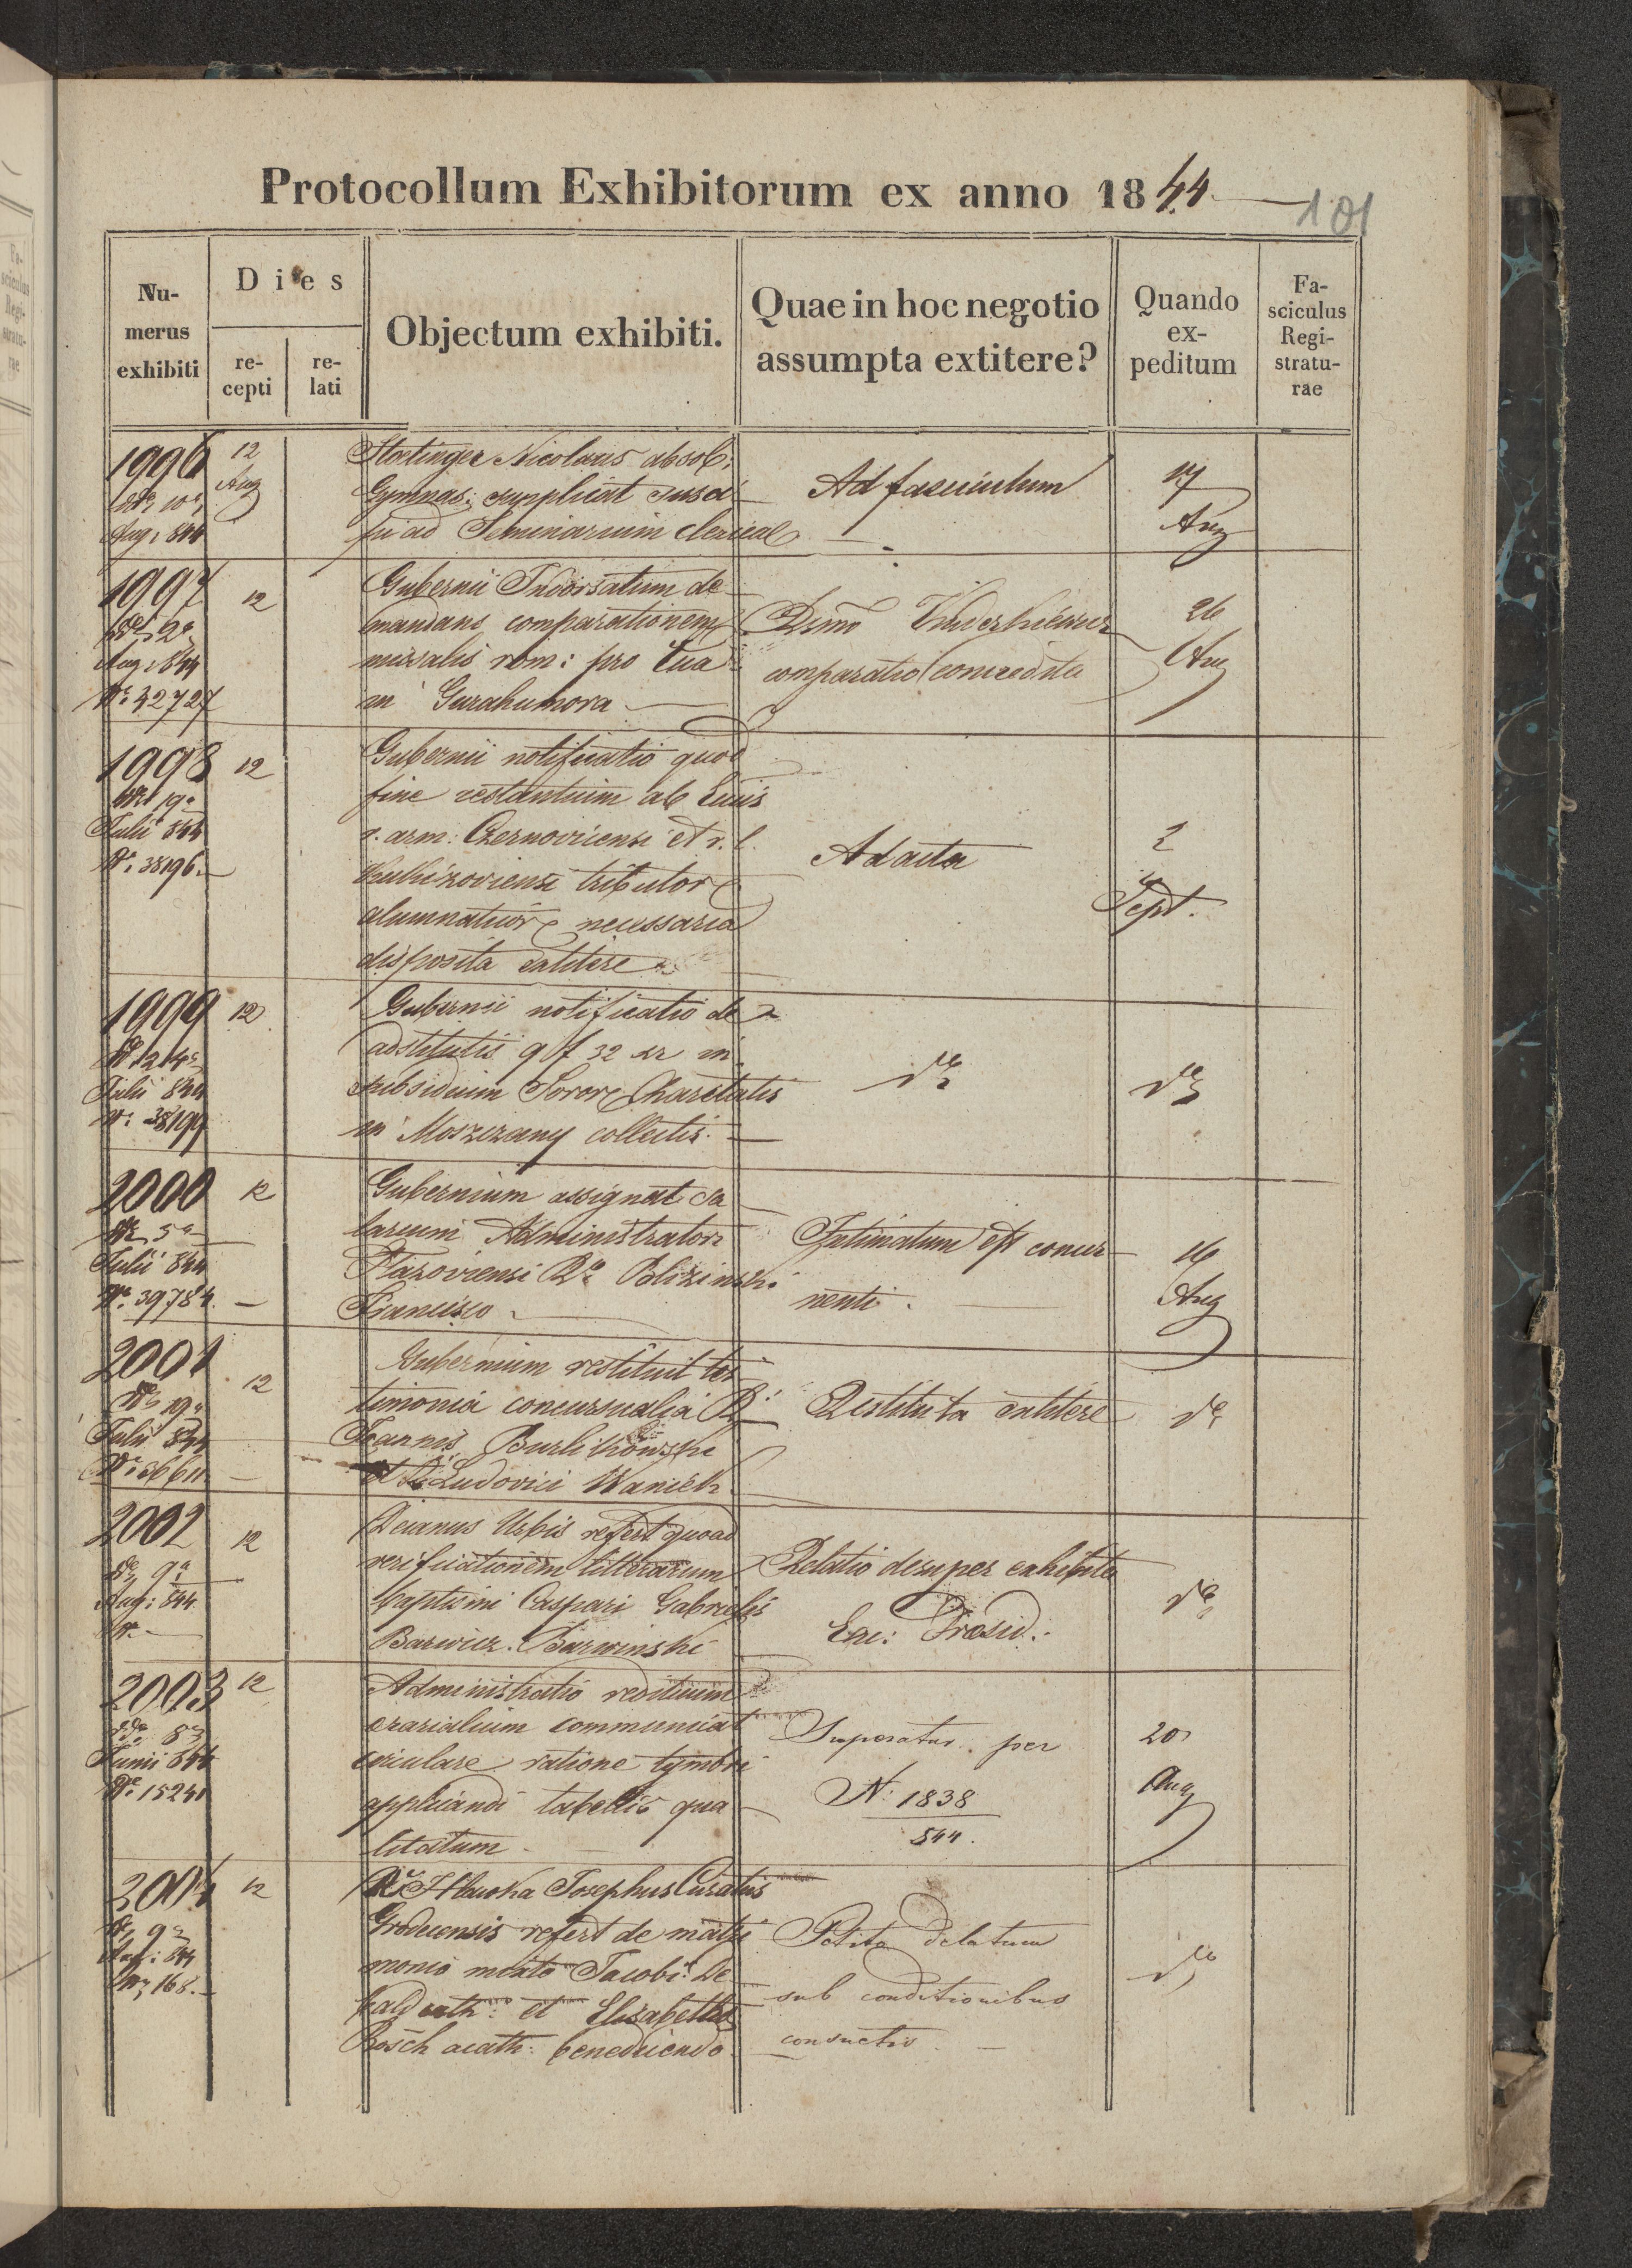 Protocollum Exhibitorum ex anno 1844
101
Nu-
merus
exhibiti
Dies
re-
cepti
re-
lati
Objectum exhibiti.
Quae in hoc negotio
assumpta extitere?
Quando
ex-
peditum
Fa-
sciculus
Regi-
stratu-
rae
1996
Aug: 844
12
Aug
Nicolaus absol:
Gymnas: supplicat susci
pi ad Seminarium clericale
Ad fasciculum
17
Aug
1997
Aug: 844
N: 42727
12
Gubernii Indorsatum de
mandans comparationem
missalis rom: pro Eccla
in Gurahumora
comparatio concredita
26
Aug
1998
19a
Julii 844
N: 38196
12
Gubernii notificatio quod
fine restantium ab Eccliis
r. arm: Czernovicensi et r. l.
tributor
alumnaticor necessaria
disposita extitere
Ad acta
2
Sept.
1999
Julii 844
N: 38199
12
Gubernii notificatio de
adstitutis 9 f 32 xr in
subsidium Soror Charitatis
in Moszczany collectis.
de
de
2000
5a
Julii 844
N: 39784.
12
Gubernium assignat sa
larium Administratori
Blizinski
Francisco
Intimatum est concer
nenti.
16
Aug
2001
19a
Julii 844
N: 36611
12
Gubernium restituit tes
timonia concursualia
Joannis Burlikowski
et Ludovici Waniek
Restituta extitere
de
2002
9a
Aug: 844.
N. —
12
Decanus Urbis refert quoad
verificationem litterarum
baptismi Caspari Gabrielis
Barwicz. Barwinski
Relatio desuper exhibita
Exc: Praesid:
de
2003
8a
Junii 844
N: 15241
12
Administratio redituum
erarialium communicat
circulare ratione tymbri
applicandi tabellis qua
litatum
Superatur per
N: 1838
844.
20
Aug
2004
9a
Aug: 844
N: 168.
12
Josephus Curatus
Grodecensis refert de matri
monio mixto Jacobi De
cath: et Elisabetha
Rösch acath: benedicendo
Petita delatum
sub conditionibus
consuetis.
de